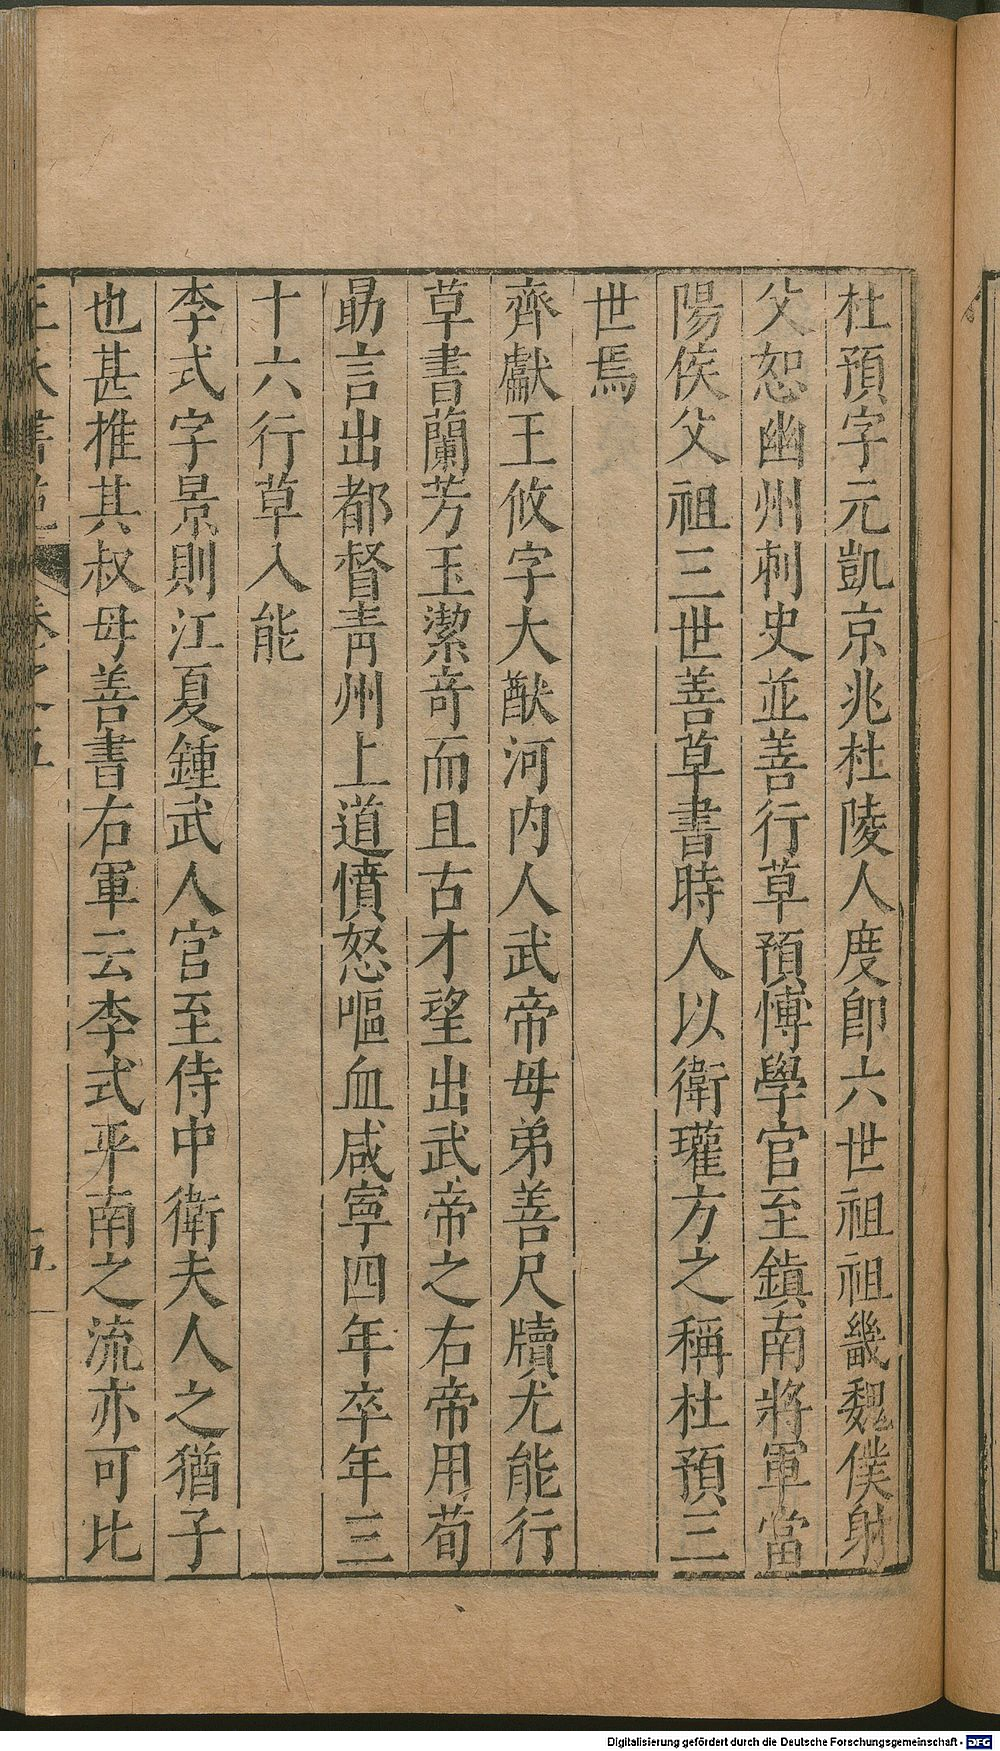 杜預字元凱京兆杜陵人度卽六世祖祖畿魏僕射
父恕幽州刺史並善行草預博學官至鎮南將軍當
陽侯父祖三世善草書時人以衛瓘方之稱杜預三
世焉
齊獻王攸字大猷河内人武帝母弟善尺牘尤能行
草書蘭芳玉潔奇而且古才望出武帝之右帝用荀
勗言出都督青州上道憤怒嘔血咸寧四年卒年三
十六行草入能
李式字景則江夏鍾武人官至侍中衛夫人之猶子
也甚推其叔母善書右軍云李式平南之流亦可比
卷之五
五
Digitalisierung gefördert durch die Deutsche Forschungsgemeinschaft - DFG